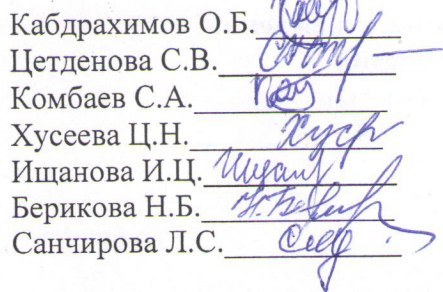 Кабдрахимов О.Б.
Цетденова С.В.
Комбаев С.А.
Хусеева Ц.Н.
Ищанова И.Ц.
Берикова Н.Б.
Санчирова Л.С.